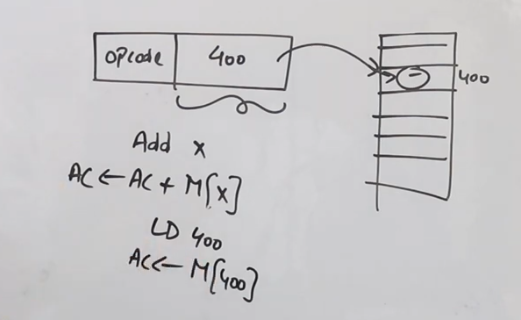 opcode 400
400
Add x
AC ← AC + M[X]
LD 400
AC ← M[400]